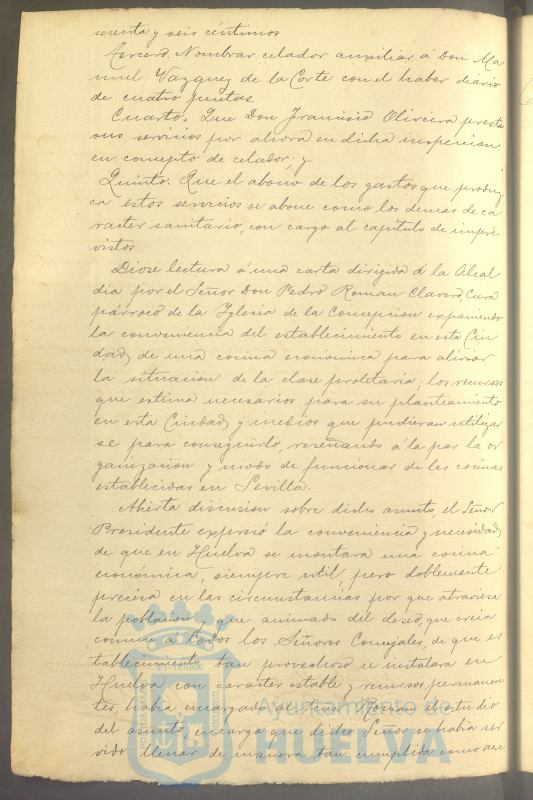 sesenta y seis céntimos
Tercero. Nombrar celador auxiliar á Don Ma
nuel Vazquez de la Corte con el haber diario
de cuatro pesetas
Cuarto. Que Don Francisco Oliveira preste
sus servicios por ahora en dicha inspeccion
en concepto de celador; y
Quinto. Que el abono de los gastos que produz
ca estos servicios se abone como los demas de ca
racter sanitario, con cargo al capitulo de impre
vistos
Diose lectura á una carta dirigida á la Alcal
dia por el Señor Don Pedro Roman Clavero, Cura
párroco de la Yglesia de la Concepcion exponiendo
la conveniencia del establecimiento en esta Ciu
dad, de una cocina económica para aliviar
la situacion de la clase proletaria; los recursos
que estima necesarios para su planteamiento
en esta Ciudad y medios que pudieran utilizar
se para conseguirlo, reseñando á la par la or
ganizacion y modo de funcionar de las cocinas
establecidas en Sevilla.
Abierta discusion sobre dicho asunto, el Señor
Presidente expresó la conveniencia y necesidad
de que en Huelva se montara una cocina
económica, siempre util, pero doblemente
precisa en las circunstancias por que atraviesa
la poblacion y que animado del deseo, que creia
comun á todos los Señores Concejales, de que es
tablecimiento tan provechoso se instalara en
Huelva con caracter estable y recursos permanen
tes, habia encargado al Señor Roman el estudio
del asunto, encargo que dicho Señor se habia ser
vido llenar de manera tan cumplida como
Ayuntamiento de
HUELVA